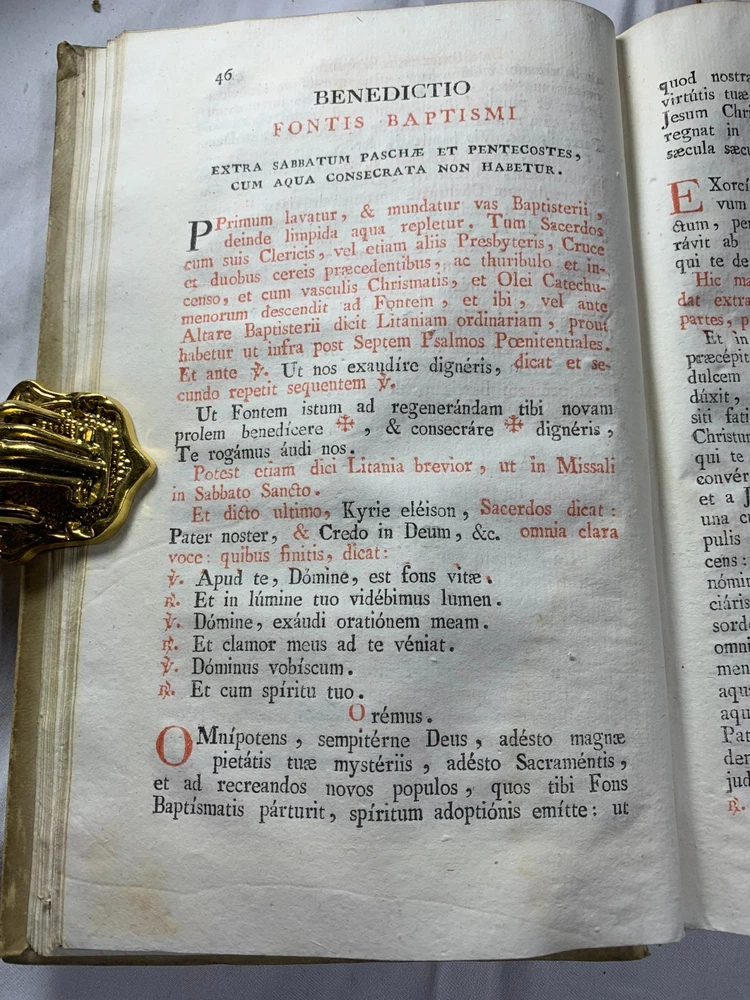 46
BENEDICTIO
FONTIS BAPTISMI
EXTRA SABBATUM PASCHÆ ET PENTECOSTES,
CUM AQUA CONSECRATA NON HABETUR.
PPrimum lavatur, & mundatur vas Baptisterii,
deinde limpida aqua repletur. Tum Sacerdos
cum suis Clericis, vel etiam aliis Presbyteris, Cruce
et duobus cereis præcedentibus, ac thuribulo et in-
censo, et cum vasculis Chrismatis, et Olei Catechu-
menorum descendit ad Fontem, et ibi, vel ante
Altare Baptisterii dicit Litaniam ordinariam, prout
habetur ut infra post Septem Psalmos Pœnitentiales.
Et ante ℣. Ut nos exaudíre dignéris, dicat et se-
cundo repetit sequentem ℣.
Ut Fontem istum ad regenerándam tibi novam
prolem benedícere ✠, & consecráre ✠ dignéris,
Te rogámus áudi nos.
Potest etiam dici Litania brevior, ut in Missali
in Sabbato Sancto.
Et dicto ultimo, Kyrie eléison, Sacerdos dicat:
Pater noster, & Credo in Deum, &c. omnia clara
voce: quibus finitis, dicat:
℣. Apud te, Dómine, est fons vitæ.
℟. Et in lúmine tuo vidébimus lumen.
℣. Dómine, exáudi oratiónem meam.
℟. Et clamor meus ad te véniat.
℣. Dóminus vobíscum.
℟. Et cum spíritu tuo.
Orémus.
OMnípotens, sempitérne Deus, adésto magnæ
pietátis tuæ mystériis, adésto Sacraméntis,
et ad recreandos novos populos, quos tibi Fons
Baptísmatis párturit, spíritum adoptiónis emítte: ut
quod nostra
virtútis tuæ
Jesum Chri
regnat in
sæcula sæcu
EXorcí
vum
ctum, per
rávit ab
qui te de
Hic ma
dat extra
partes, p
Et in
præcépit
dulcem
dúxit,
siti fati
Christum
qui te
convér
et a J
una cu
pulis
cens:
nómin
ciáris
sorde
omni
men
aqu
aqu
Pat
der
jud
℟.